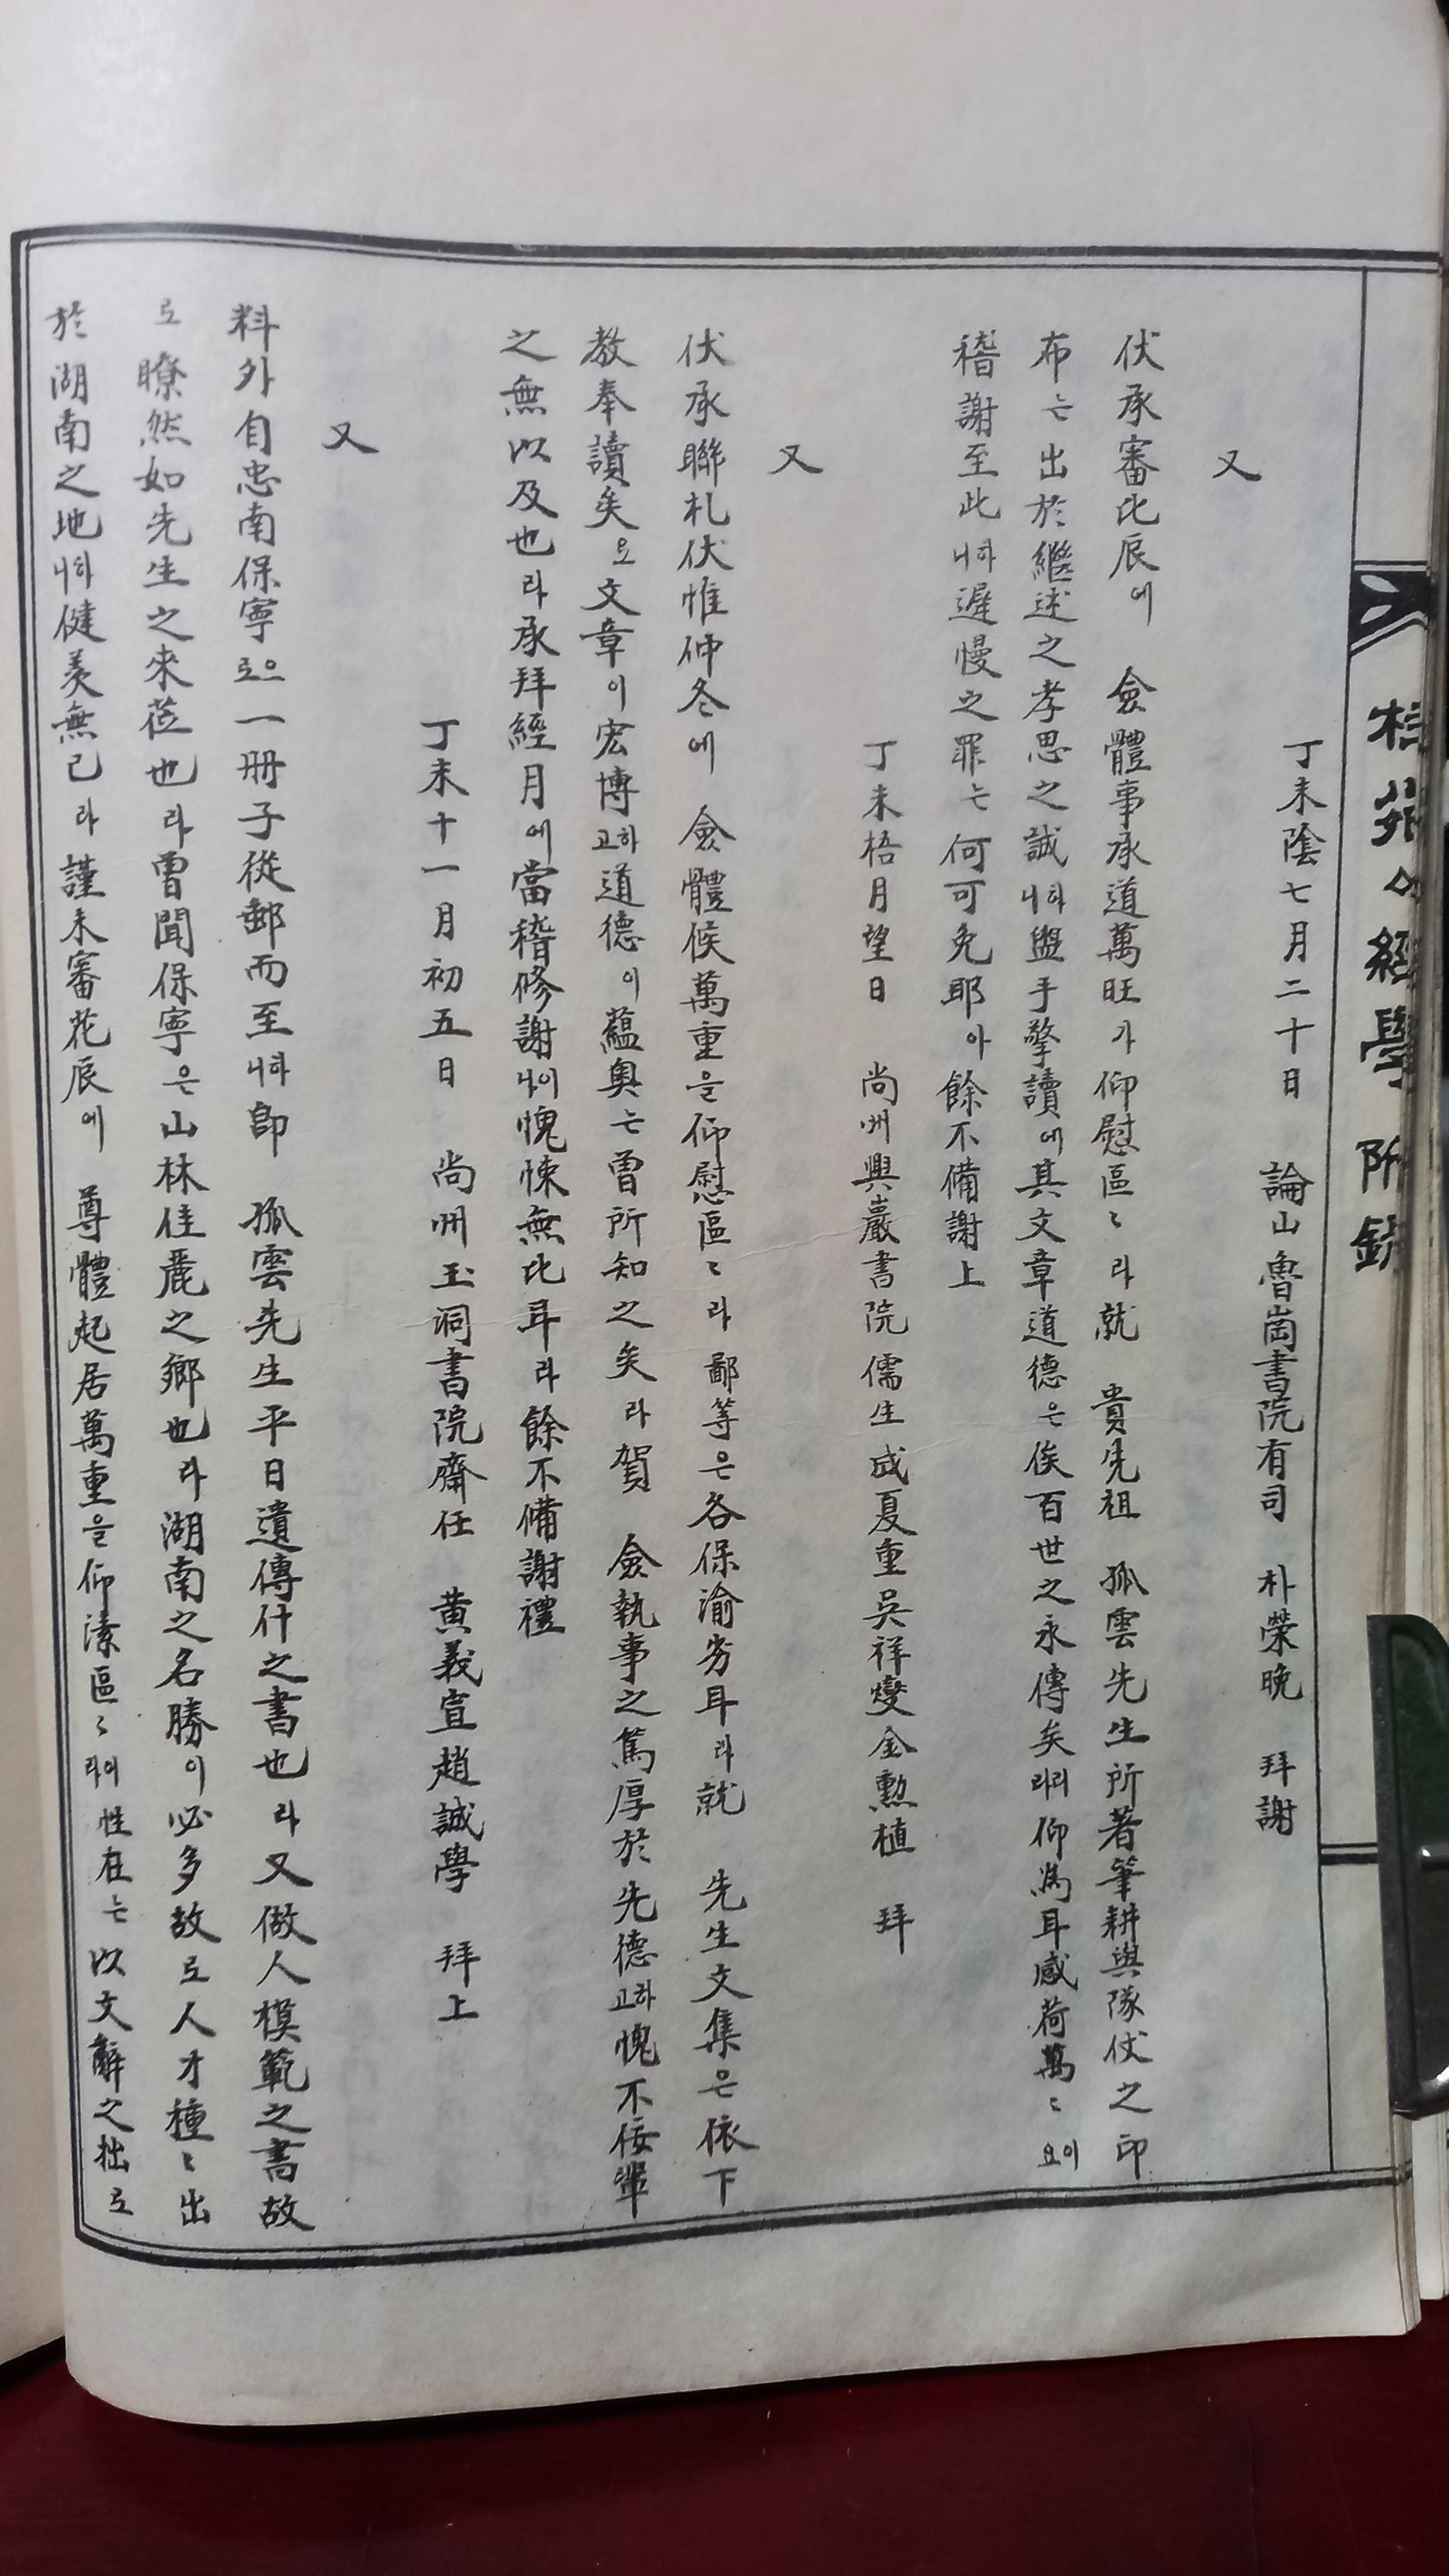 丁未陰七月二十日 論山魯崗書院有司 朴榮晩 拜謝
又
伏承審比辰에 僉體事承道萬旺가仰慰區〻라就 貴先祖 孤雲先生所著筆耕與隊仗之印
布는出於繼述之孝思之誠니하盥手擎讀에其文章道德은俟百世之永傳矣리니仰爲耳感荷萬〻요이
稽謝至此니하遲慢之罪는何可免耶아餘不備謝上
丁未梧月望日 尚州興巖書院儒生成夏重吳祥燮金勲植 拜
又
伏承聯札伏惟仲冬에 僉體候萬重을仰慰區〻라鄙等은各保渝劣耳라就 先生文集은依下
教奉讀矣로文章이宏博고하道德이蘊奥는曽所知之矣라賀 僉執事之篤厚於先德고하愧不佞輩
之無以及也라承拜經月에當稽修謝나이愧悚無比耳라餘不備謝禮
丁未十一月初五日 尚州玉洞書院齋任 黄義宣趙誠學 拜上
又
料外自忠南保寧로으一冊子從郵而至니하卽 孤雲先生平日遺傳什之書也라又做人模範之書故
로瞭然如先生之來莅也라曽聞保寧은山林佳麗之鄉也라湖南之名勝이必多故로人才種〻出
於湖南之地니하健羡無已라謹未審花辰에 尊體起居萬重을仰溸區〻라이性在는以文辭之拙로
附錄